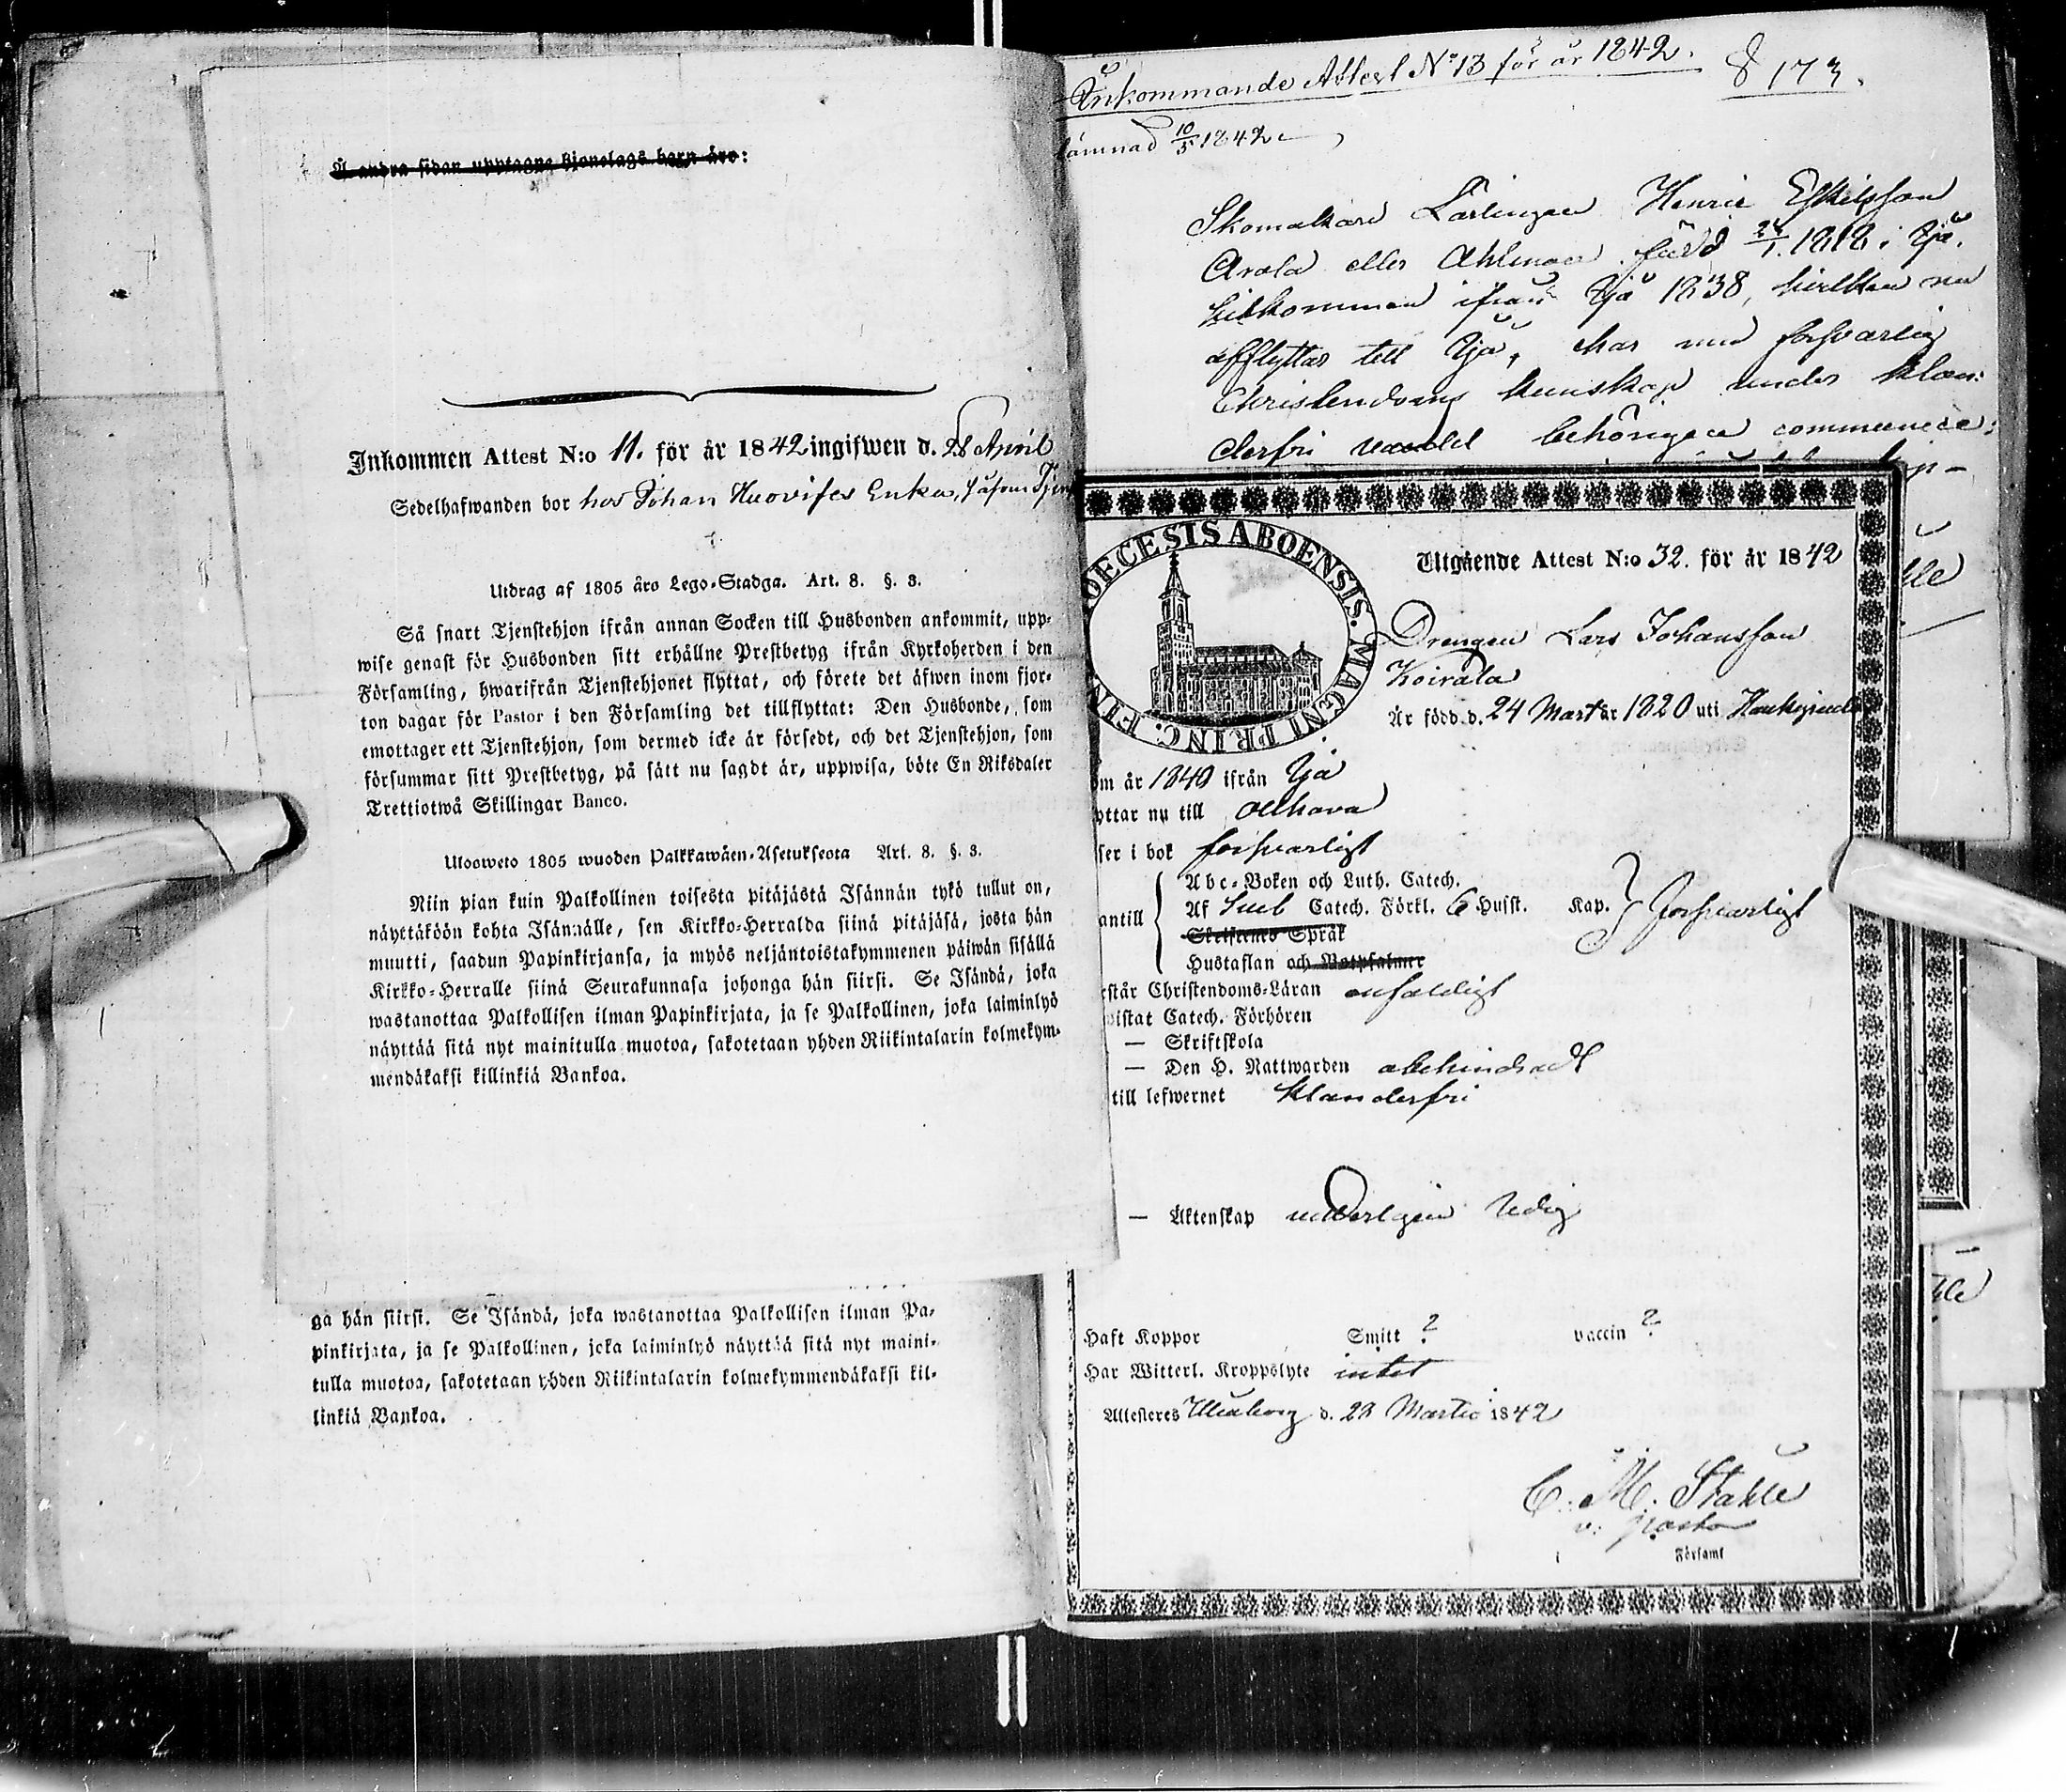 Å andra sidan upptagne Hjonelags barn äro:
Inkommen Attest N:o 11. för år 1842 ingifwen d. 28 April
Sedelhafwanden bor hos Johan Huovises Enka, såsom
Utdrag af 1805 års Lego-Stadga. Art. 8. §. 3.
Så snart Tjenstehjon ifrån annan Socken till Husbonden ankommit, upp-
wise genast för Husbonden sitt erhållne Prestbetyg ifrån Kyrkoherden i den
Församling, hwarifrån Tjenstehjonet flyttat, och förete det äfwen inom fjor-
ton dagar för Pastor i den Församling det tillflyttat: Den Husbonde, som
emottager ett Tjenstehjon, som dermed icke är försedt, och det Tjenstehjon, som
försummar sitt Prestbetyg, på sätt nu sagdt är, uppwisa, böte En Riksdaler
Trettiotwå Skillingar Banco.
Uloosweto 1805 wuoden Palkkawäen-Asetuksesta Art. 8. §. 3.
Niin pian kuin Palkollinen toisesta pitäjästä Isännän tykö tullut on,
näyttäköön kohta Isännälle, sen Kirkko-Herralda siinä pitäjäsä, josta hän
muutti, saadun Papinkirjansa, ja myös neljäntoistakymmenen päiwän sisällä
Kirkko-Herralle siinä Seurakunnasa johonga hän siirsi. Se Isändä, joka
wastanottaa Palkollisen ilman Papinkirjata, ja se Palkollinen, joka laiminlyö
näyttää sitä nyt mainitulla muotoa, sakotetaan yhden Riikintalarin kolmekym-
mendäkaksi killinkiä Bankoa.
ga hän siirsi. Se Isändä, joka wastanottaa Palkollisen ilman Pa-
pinkirjata, ja se Palkollinen, joka laiminlyö näyttää sitä nyt maini-
tulla muotoa, sakotetaan yhden Riikintalarin kolmekymmendäkaksi kil-
linkiä Bankoa.
Inkommande Attest No 13 för år 1842. 173.
lämnad 10/5 1842
Skomakare Lärlingen Henric Eskilsson
Arola eller Ahlman född 24/1. 1818 i Ijå.
hitkommen ifrån Ijå 1838, hvilken nu
afflyttar till Ijå, har med försvarlig
Christendoms kunskap under klan:
derfri vandel behörigen communice:
OECESIS ABOENSIS. MAGNI PRINC. FIN
Utgående Attest N:o 32. för år 1842
Drengen Lars Johansson
Koirala
Är född d. 24 Mart år 1820 uti
om år 1840 ifrån Ijå
yttar nu till
ser i bok försvarligt
antill
Abc-Boken och Luth. Catech.
Af Sueb Catech. Förkl. 6 Hufst. Kap. försvarligt
Skriftenes Språk
Hustaflan och Botpsalmer
rstår Christendoms-Läran enfaldigt
vistat Catech. Förhören
— Skriftskola
— Den H. Nattwarden obehindradt
till lefwernet klanderfri
— Äktenskap veterligen ledig
Haft Koppor Smitt ? vaccin ?
Har Witterl. Kroppslyte intet
Attesteres Uleåborg d. 22 Martii 1842
C. M. Ståhle
v. pastor
Församl